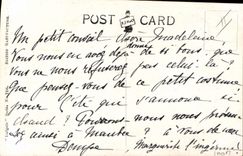 POST CARD
Un petit conseil chère Madeleine
Vous nous en avez déjà donné de si bons, que
vous ne nous refuserez pas celui là ?
Que pensez-vous de ce petit costume
pour l'été qui s'annonce si
chaud ? Pouvons-nous nous
aussi à Mantes ? à vous de
Denyse Marguerite